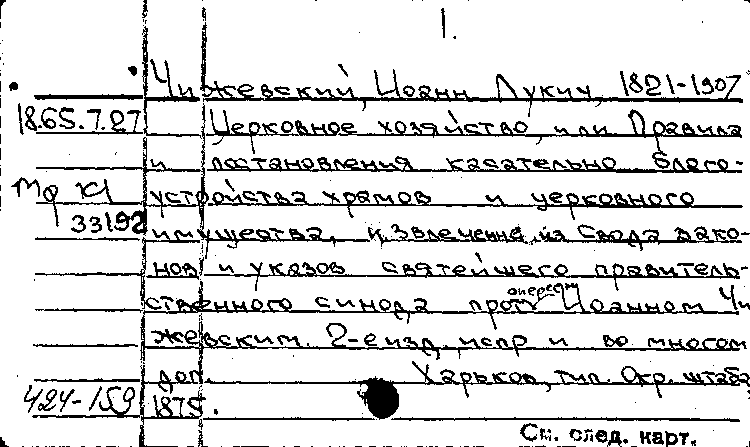 1.
Чижевский, Иоанн Лукич, 1821-1907
18.65.7.27 Церковное хозяйство, или Правила
и постановления касательно благо-
Мф К1 устройства храмов и церковного
33192 имущества, извлеченные из Свода зако-
нов и указов святейшего правитель-
ственного синода протоиереем Иоанном Чи
жевским. 2-е изд., испр и во многом
доп. Харьков, тип. Окр. штаба,
424-159 1875.
См. след. карт.